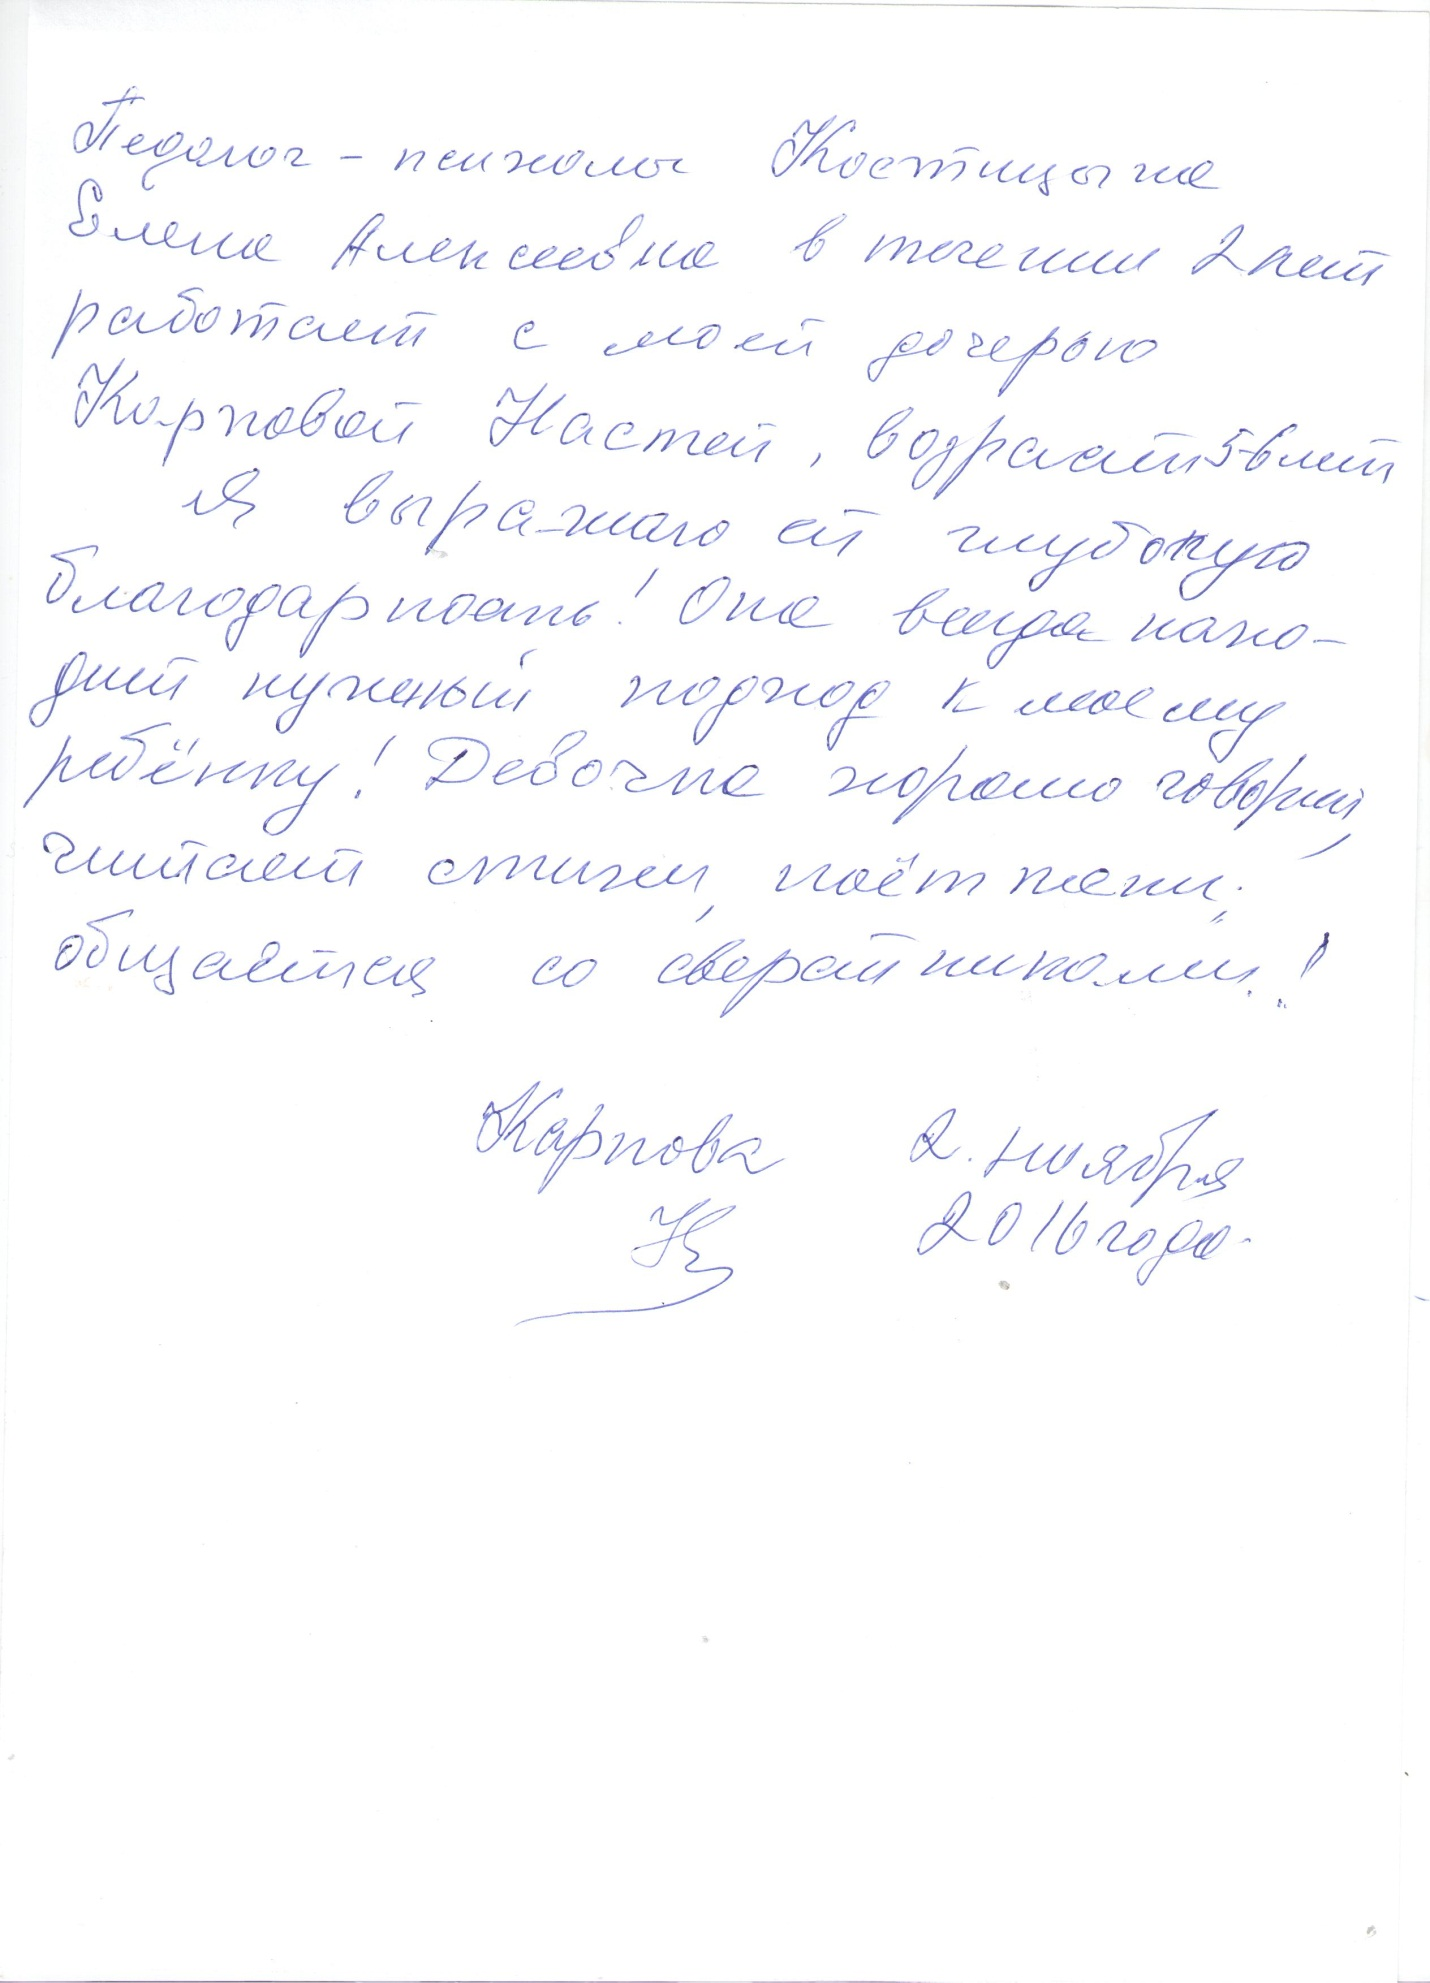 Педагог - психолог Костицына
Елена Алексеевна в течении 2 лет
работает с моей дочерью
Карповой Настей, возраст 5-6 лет
Я выражаю ей глубокую
благодарность! Она всегда нахо-
дит нужный подход к моему
ребёнку! Девочка хорошо говорит,
читает стихи, поёт песни,
общается со сверстниками!
Карпова 2. ноября
2016 года.